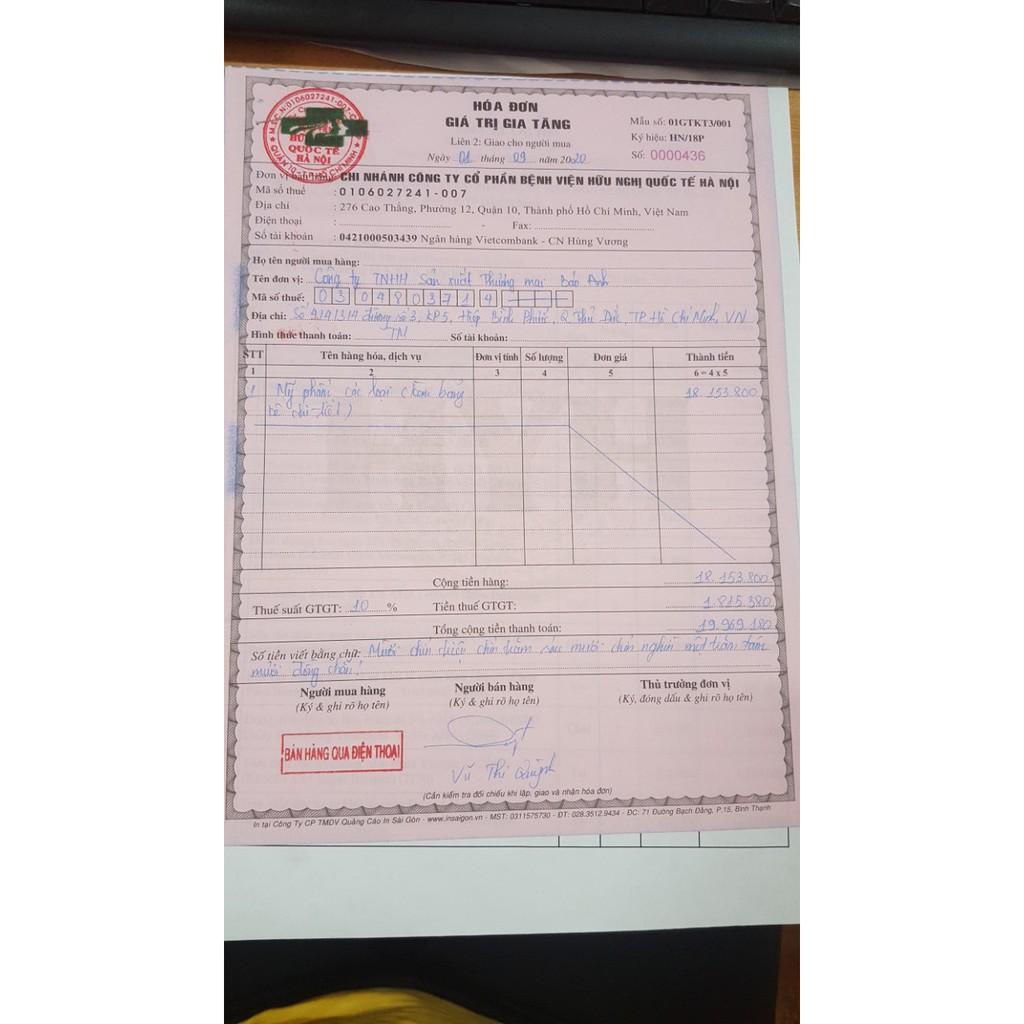 HÓA ĐƠN
GIÁ TRỊ GIA TĂNG
Liên 2: Giao cho người mua
Ngày 01 tháng 09 năm 2020
Mẫu số: 01GTKT3/001
Ký hiệu: HN/18P
Số: 0000436
M.S.C.N:0106027241-007-C
QUỐC TẾ
HÀ NỘI
QUẬN 10 - T.P HỒ CHÍ MINH
Đơn vị CHI NHÁNH CÔNG TY CỔ PHẦN BỆNH VIỆN HỮU NGHỊ QUỐC TẾ HÀ NỘI
Mã số thuế : 0106027241-007
Địa chỉ : 276 Cao Thắng, Phường 12, Quận 10, Thành phố Hồ Chí Minh, Việt Nam
Điện thoại : - Fax:
Số tài khoản : 0421000503439 Ngân hàng Vietcombank - CN Hùng Vương
Họ tên người mua hàng:
Tên đơn vị: Công ty TNHH Sản xuất Thương mại Bảo Anh
Mã số thuế: 03 0480371 4
Địa chỉ: Số 414/314 đường số 3, KP5, Hiệp Bình Phước, Q Thủ Đức, TP Hồ Chí Minh, VN
Hình thức thanh toán: TM Số tài khoản:
STT Tên hàng hóa, dịch vụ Đơn vị tính Số lượng Đơn giá Thành tiền
1 2 3 4 5 6 = 4 x 5
1 Mỹ phẩm các loại (kèm bảng 18.153.800
kê chi tiết)
Cộng tiền hàng: 18.153.800
Thuế suất GTGT: 10 % Tiền thuế GTGT: 1.815.380
Tổng cộng tiền thanh toán: 19.969.180
Số tiền viết bằng chữ: Mười chín triệu chín trăm sáu mươi chín nghìn một trăm tám
mươi đồng chẵn!
Người mua hàng Người bán hàng Thủ trưởng đơn vị
(Ký & ghi rõ họ tên) (Ký & ghi rõ họ tên) (Ký, đóng dấu & ghi rõ họ tên)
BÁN HÀNG QUA ĐIỆN THOẠI
Vũ Thị Quỳnh
(Cần kiểm tra đối chiếu khi lập, giao và nhận hóa đơn)
In tại Công Ty CP TMDV Quảng Cáo In Sài Gòn - www.insaigon.vn - MST: 0311575730 - ĐT: 028.3512.9434 - ĐC: 71 Đường Bạch Đằng, P.15, Bình Thạnh